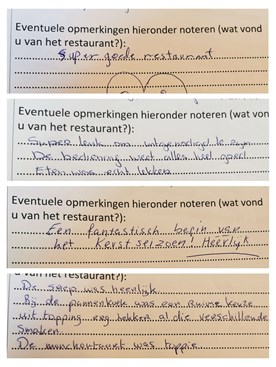 Eventuele opmerkingen hieronder noteren (wat vond
u van het restaurant?):
Super goede restaurant
Eventuele opmerkingen hieronder noteren (wat vond
u van het restaurant?):
Super leuk om uitgenodigd te zijn
De bediening weet alles wel goed
Eten was echt lekker
Eventuele opmerkingen hieronder noteren (wat vond
u van het restaurant?):
Een fantastisch begin van
het Kerstseizoen! Heerlijk
u van het restaurant?):
De soep was heerlijk
Bij de pannenkoek was een ruime keuze
uit topping erg lekker al die verschillende
smaken
De was toppie